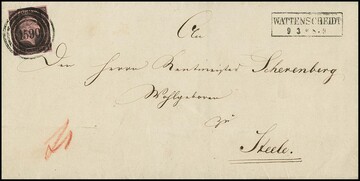 1590
WATTENSCHEIDT
9 3 * 8-9
An
Den Herrn Rentmeister Scherenberg
Wohlgeboren
zu
Steele.